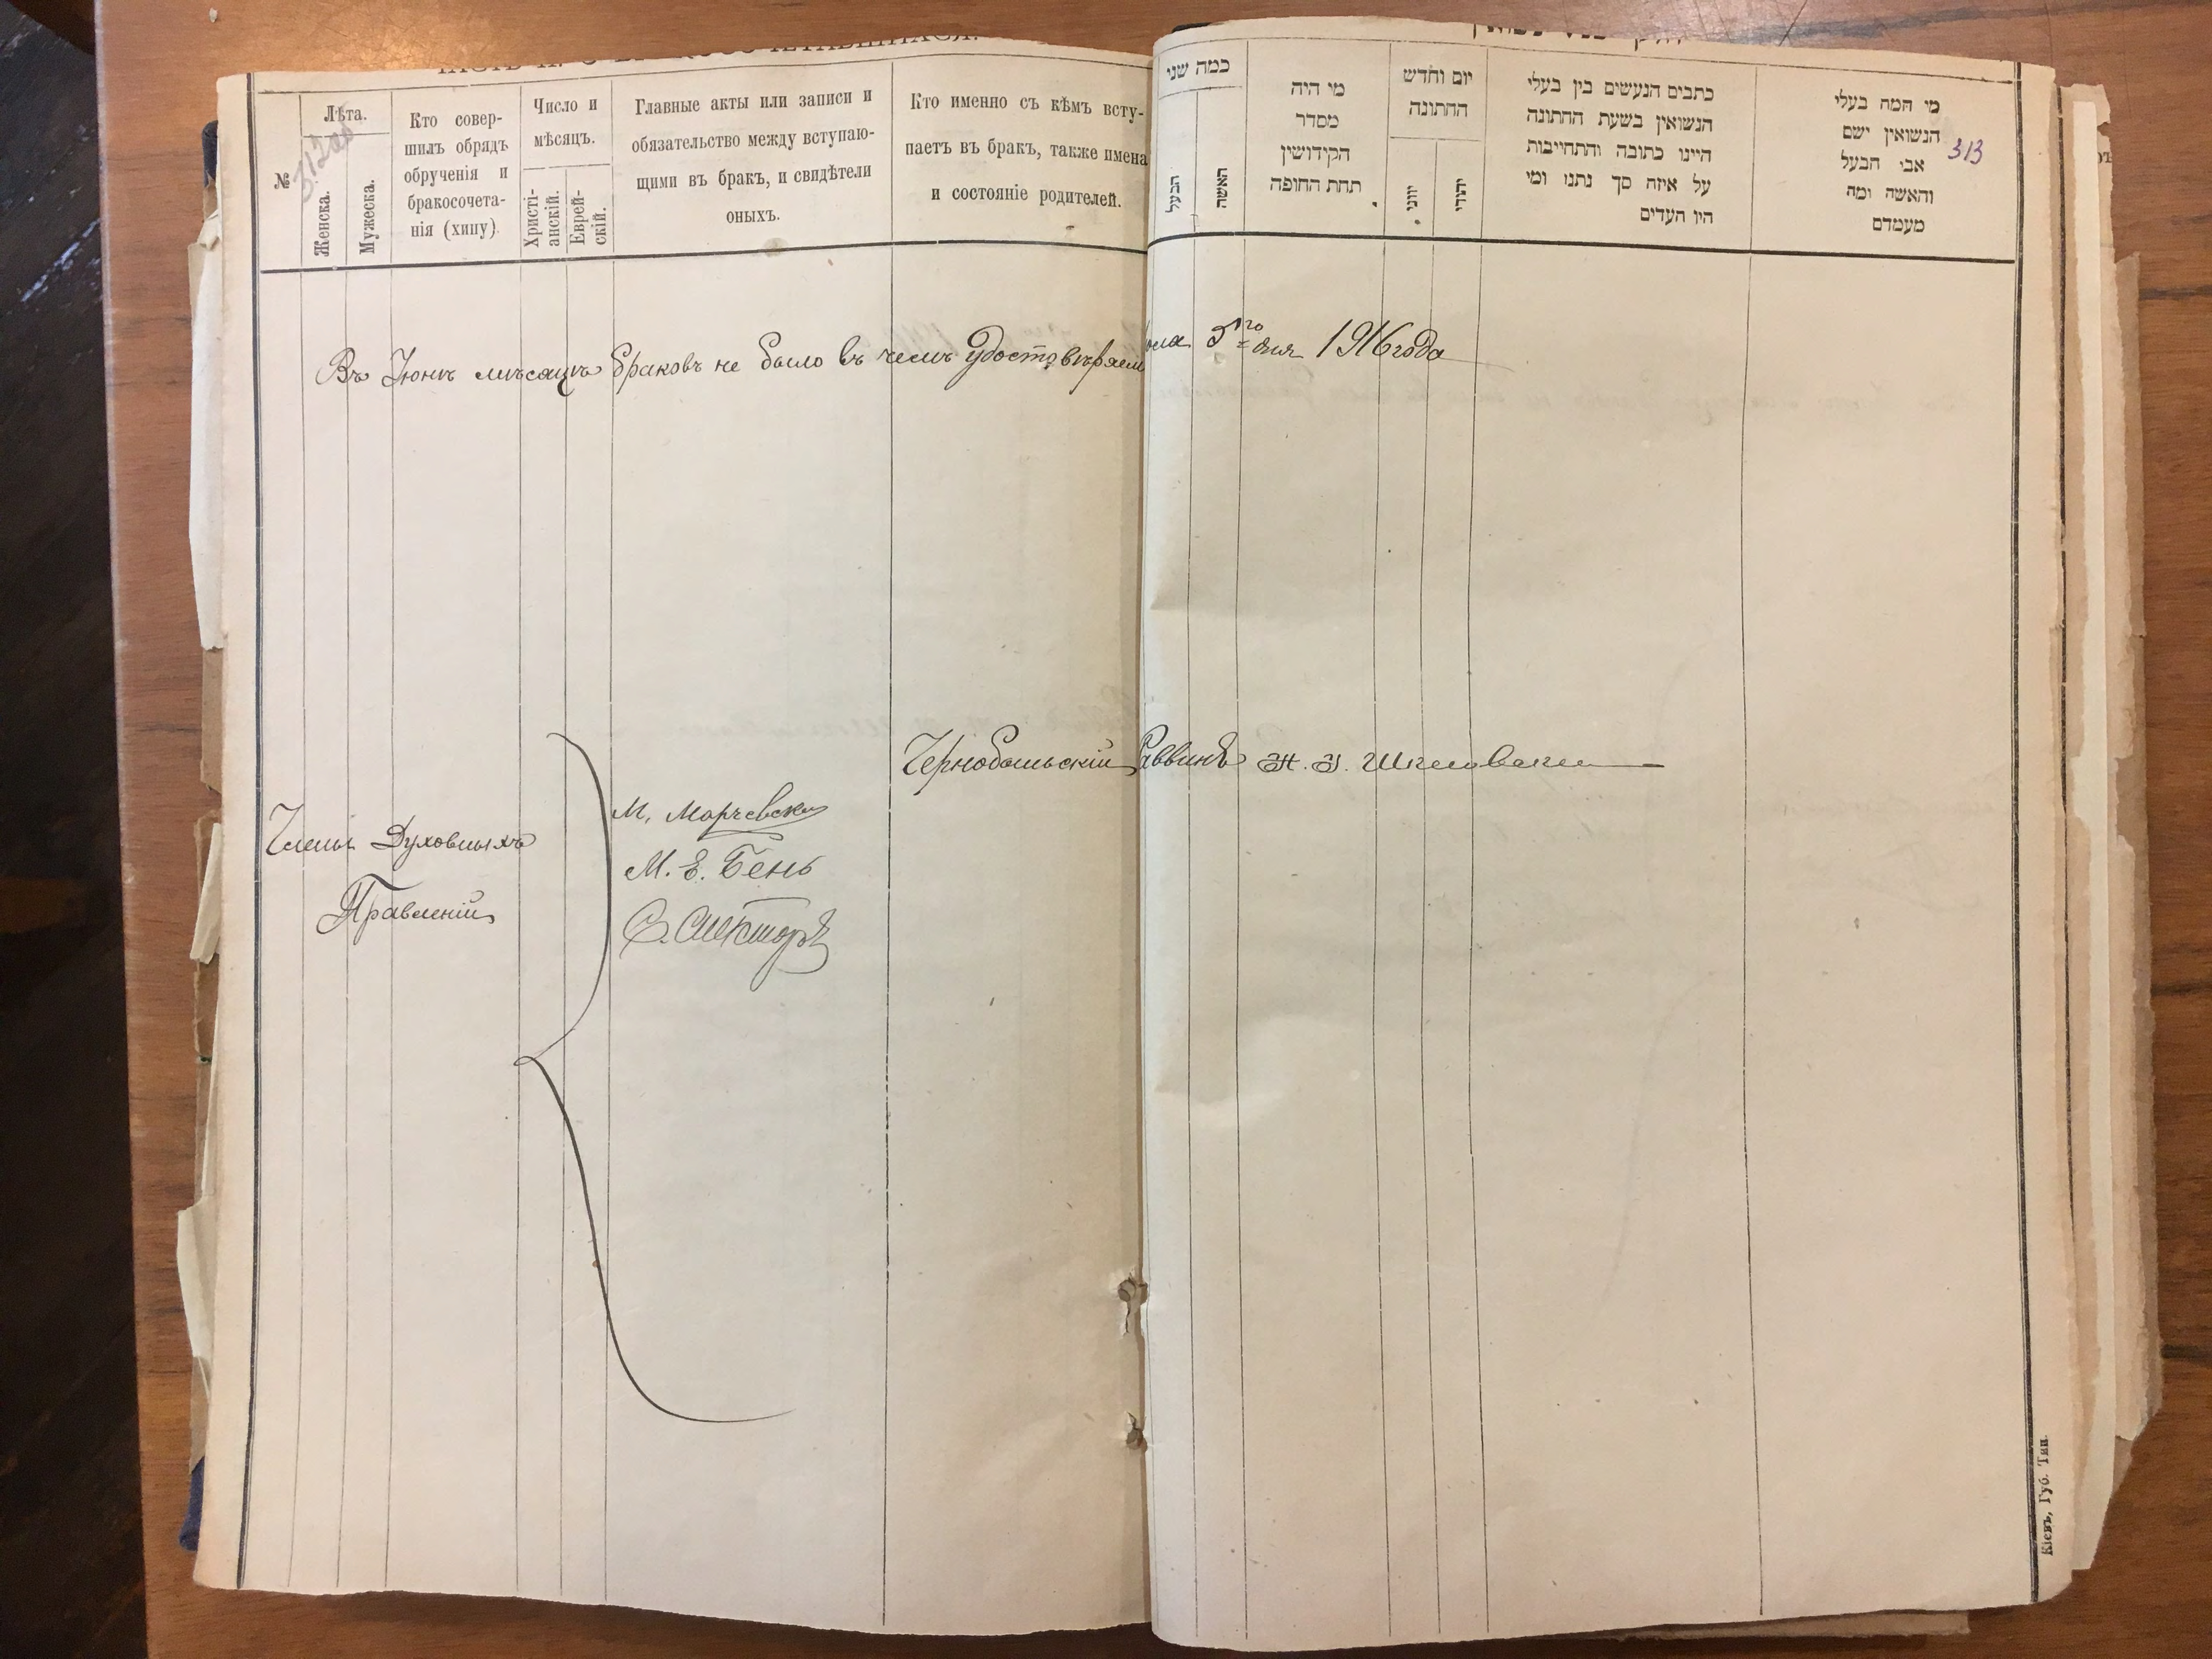 №
Лѣта.
Женска.
Мужеска.
Кто совер-
шилъ обрядъ
обрученія и
бракосочета-
нія (хипу).
Число и
мѣсяцъ.
Христі-
анскій.
Еврей-
скій.
Главные акты или записи и
обязательство между вступаю-
щими въ бракъ, и свидѣтели
оныхъ.
Кто именно съ кѣмъ всту-
паетъ въ бракъ, также имена
и состояніе родителей.
כמה שני
הבעל
האשה
מי היה
מסדר
הקידושין
תחת החופה
יום וחדש
החתונה
יוני
יהודי
כתבים הנעשים בין בעלי
הנשואין בשעת החתונה
היינו כתובה והתחייבות
על איזה סך נתנו ומי
היו העדים
מי המה בעלי
הנשואין ושם
אבי הבעל
והאשה ומה
מעמדם
313
Въ Іюнѣ мѣсяцѣ браковъ не было въ чемъ удостовѣряем 1916 года
Чернобыльскій Раввинъ
Члены Духовныхъ
Правленій
М. Е. Бень
С. Спекторъ
Кіевъ, Губ. Тип.